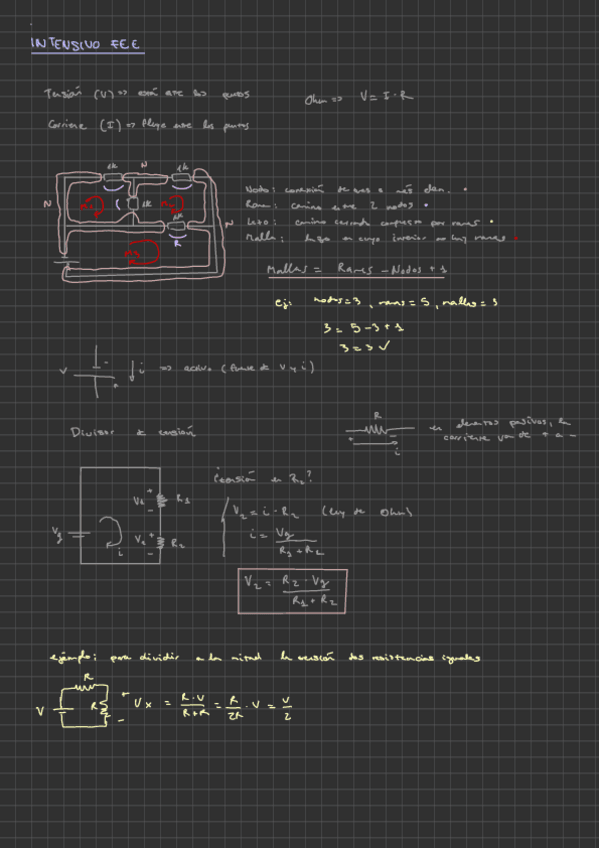 INTENSIVO FEE
Tensión (V) => está entre los puntos
Ohm => V = I · R
Corriente (I) => fluye entre los puntos
1k N 1k
N 1k N
1k
R
Nodo: conexión de dos o más elem.
Rama: camino entre 2 nodos
Lazo: camino cerrado compuesto por ramas
Malla: lazo en cuyo interior no hay ramas
Mallas = Ramas - Nodos + 1
ej: nodos = 3, ramas = 5, mallas = 3
3 = 5 - 3 + 1
3 = 3 ✓
V i => activo (fuente de V y i)
R
+ - i
en elementos pasivos, la
corriente va de + a -
Divisor de tensión
¿tensión en R2?
Vg i V1 + - R1
V2 + - R2
V2 = i · R2 (ley de Ohm)
i = Vg / R1 + R2
V2 = R2 · Vg / R1 + R2
ejemplo: para dividir a la mitad la tensión dos resistencias iguales
R
V R + - Vx = R·V / R+R = R / 2R · V = V / 2